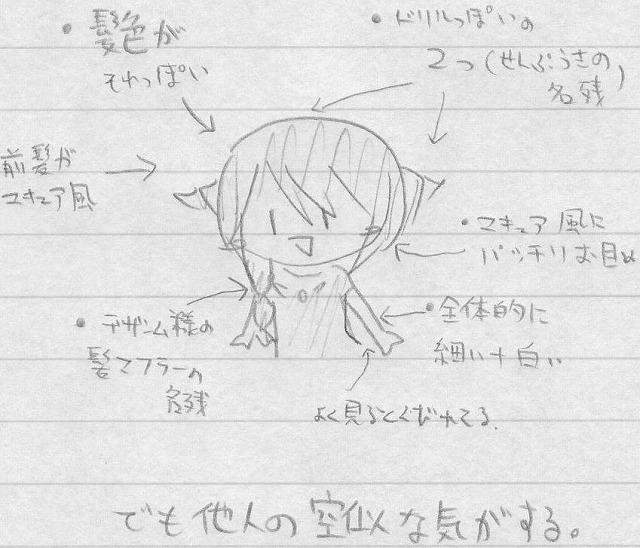 ・髪色が
それっぽい
・ドリルっぽいの
2つ(せんぷうきの
名残)
前髪が
マキュア風
・マキュア風に
パッチリお目め
・デザーム様の
髪マフラーの
名残
・全体的に
細い+白い
よく見るとくびれてる。
でも他人の空似な気がする。